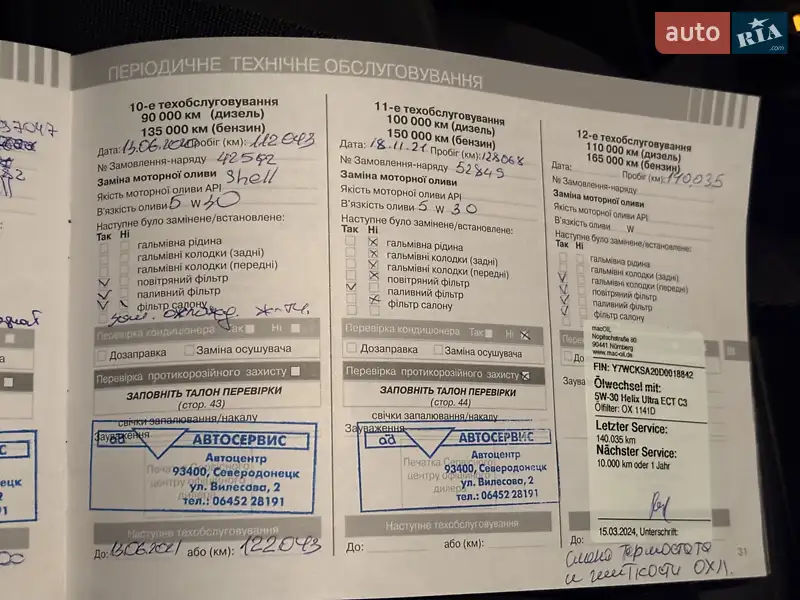 auto RIA.com
97047
ПЕРІОДИЧНЕ ТЕХНІЧНЕ ОБСЛУГОВУВАННЯ
10-е техобслуговування
90 000 км (дизель)
135 000 км (бензин)
Дата: 13.06.2020 Пробіг (км): 112043
№ Замовлення-наряду
Заміна моторної оливи Shell
Якість моторної оливи API
В'язкість оливи 5 W 30
Наступне було замінене/встановлене:
Так Ні
гальмівна рідина
гальмівні колодки (задні)
гальмівні колодки (передні)
повітряний фільтр
паливний фільтр
фільтр салону
Перевірка кондиціонера Так Ні
Дозаправка Заміна осушувача
Перевірка протикорозійного захисту
ЗАПОВНІТЬ ТАЛОН ПЕРЕВІРКИ
(стор. 43)
свічки запалювання/накалу
Зауваження
ad АВТОСЕРВИС
Автоцентр
93400, Северодонецк
ул. Вилесова, 2
тел.: 06452 28191
Наступне техобслуговування
До: 13.06.2021 або (км): 122043
11-е техобслуговування
100 000 км (дизель)
150 000 км (бензин)
Дата: 18.11.21 Пробіг (км): 128068
№ Замовлення-наряду 52849
Заміна моторної оливи
Якість моторної оливи API
В'язкість оливи 5 W 30
Наступне було замінене/встановлене:
Так Ні
гальмівна рідина
гальмівні колодки (задні)
гальмівні колодки (передні)
повітряний фільтр
паливний фільтр
фільтр салону
Перевірка кондиціонера Так Ні
Дозаправка Заміна осушувача
Перевірка протикорозійного захисту
ЗАПОВНІТЬ ТАЛОН ПЕРЕВІРКИ
(стор. 44)
свічки запалювання/накалу
Зауваження
ad АВТОСЕРВИС
Автоцентр
93400, Северодонецк
ул. Вилесова, 2
тел.: 06452 28191
Наступне техобслуговування
До: або (км):
12-е техобслуговування
110 000 км (дизель)
165 000 км (бензин)
Дата: Пробіг (км): 140.035
№ Замовлення-наряду
Заміна моторної оливи
Якість моторної оливи API
В'язкість оливи W
Наступне було замінене/встановлене:
Так Ні
гальмівна рідина
гальмівні колодки (задні)
гальмівні колодки (передні)
повітряний фільтр
паливний фільтр
фільтр салону
macOIL
Nopitschstraße 90
90441 Nürnberg
www.mac-oil.de
FIN: Y7WCKSA20D0018842
Ölwechsel mit:
5W-30 Helix Ultra ECT C3
Ölfilter: OX 1141D
Letzter Service:
140.035 km
Nächster Service:
10.000 km oder 1 Jahr
15.03.2024, Unterschrift:
До:
31
смена термостата
и жидкости охл.